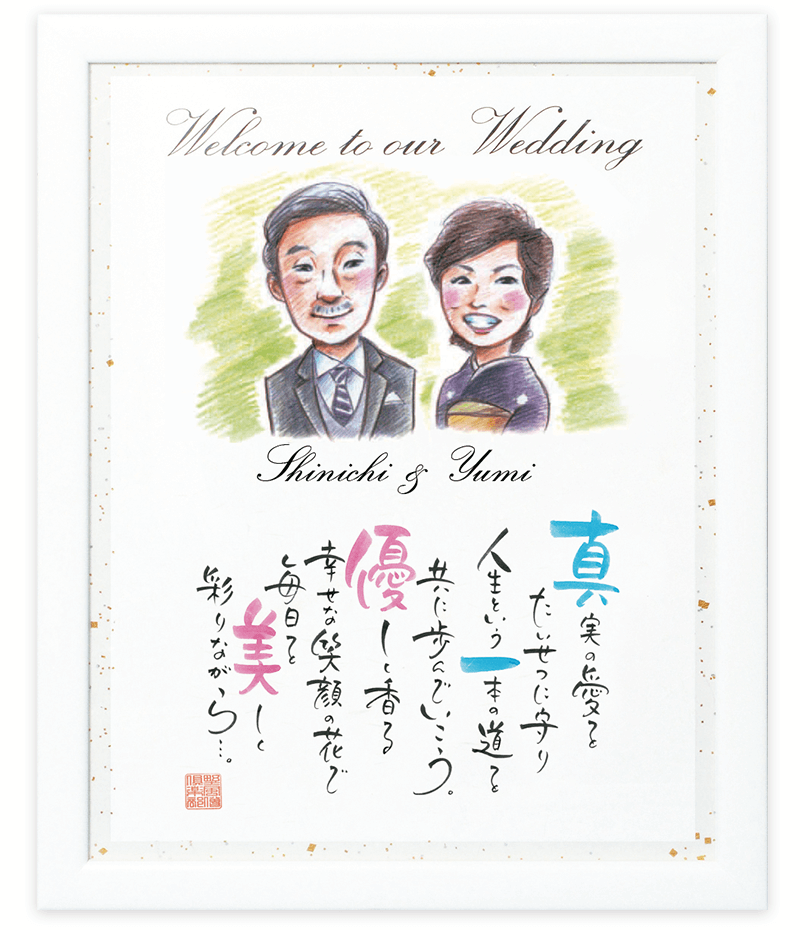 Welcome to our Wedding
Shinichi & Yumi
真実の愛を
たいせつに守り
人生という一本の道を
共に歩んでいこう。
優しく香る
幸せな笑顔の花で
毎日を
美しく
彩りながら…。